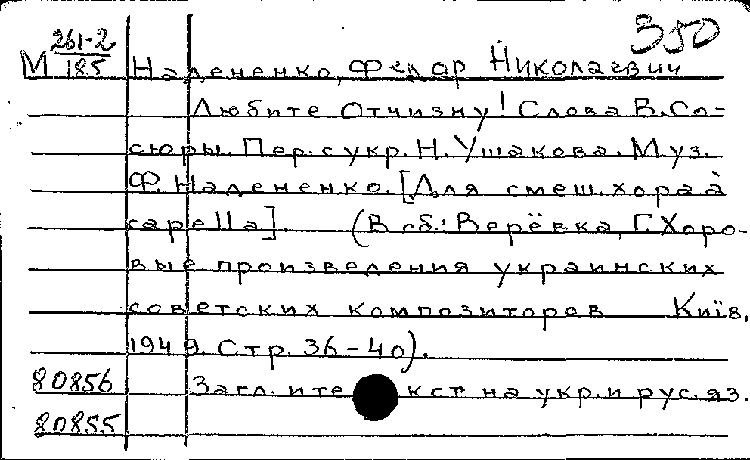 350
М 261-2/185 Надененко, Федор Николаевич
Любите Отчизну! Слова В. Со-
сюры. Пер. с укр. Н. Ушакова. Муз.
Ф. Надененко. [Для смеш. хора à
capella]. (В сб.: Верёвка, Г. Хоро-
вые произведения украинских
советских композиторов Київ,
1949. Стр. 36-40).
80856 Загл. и те кст на укр. и рус. яз.
80855